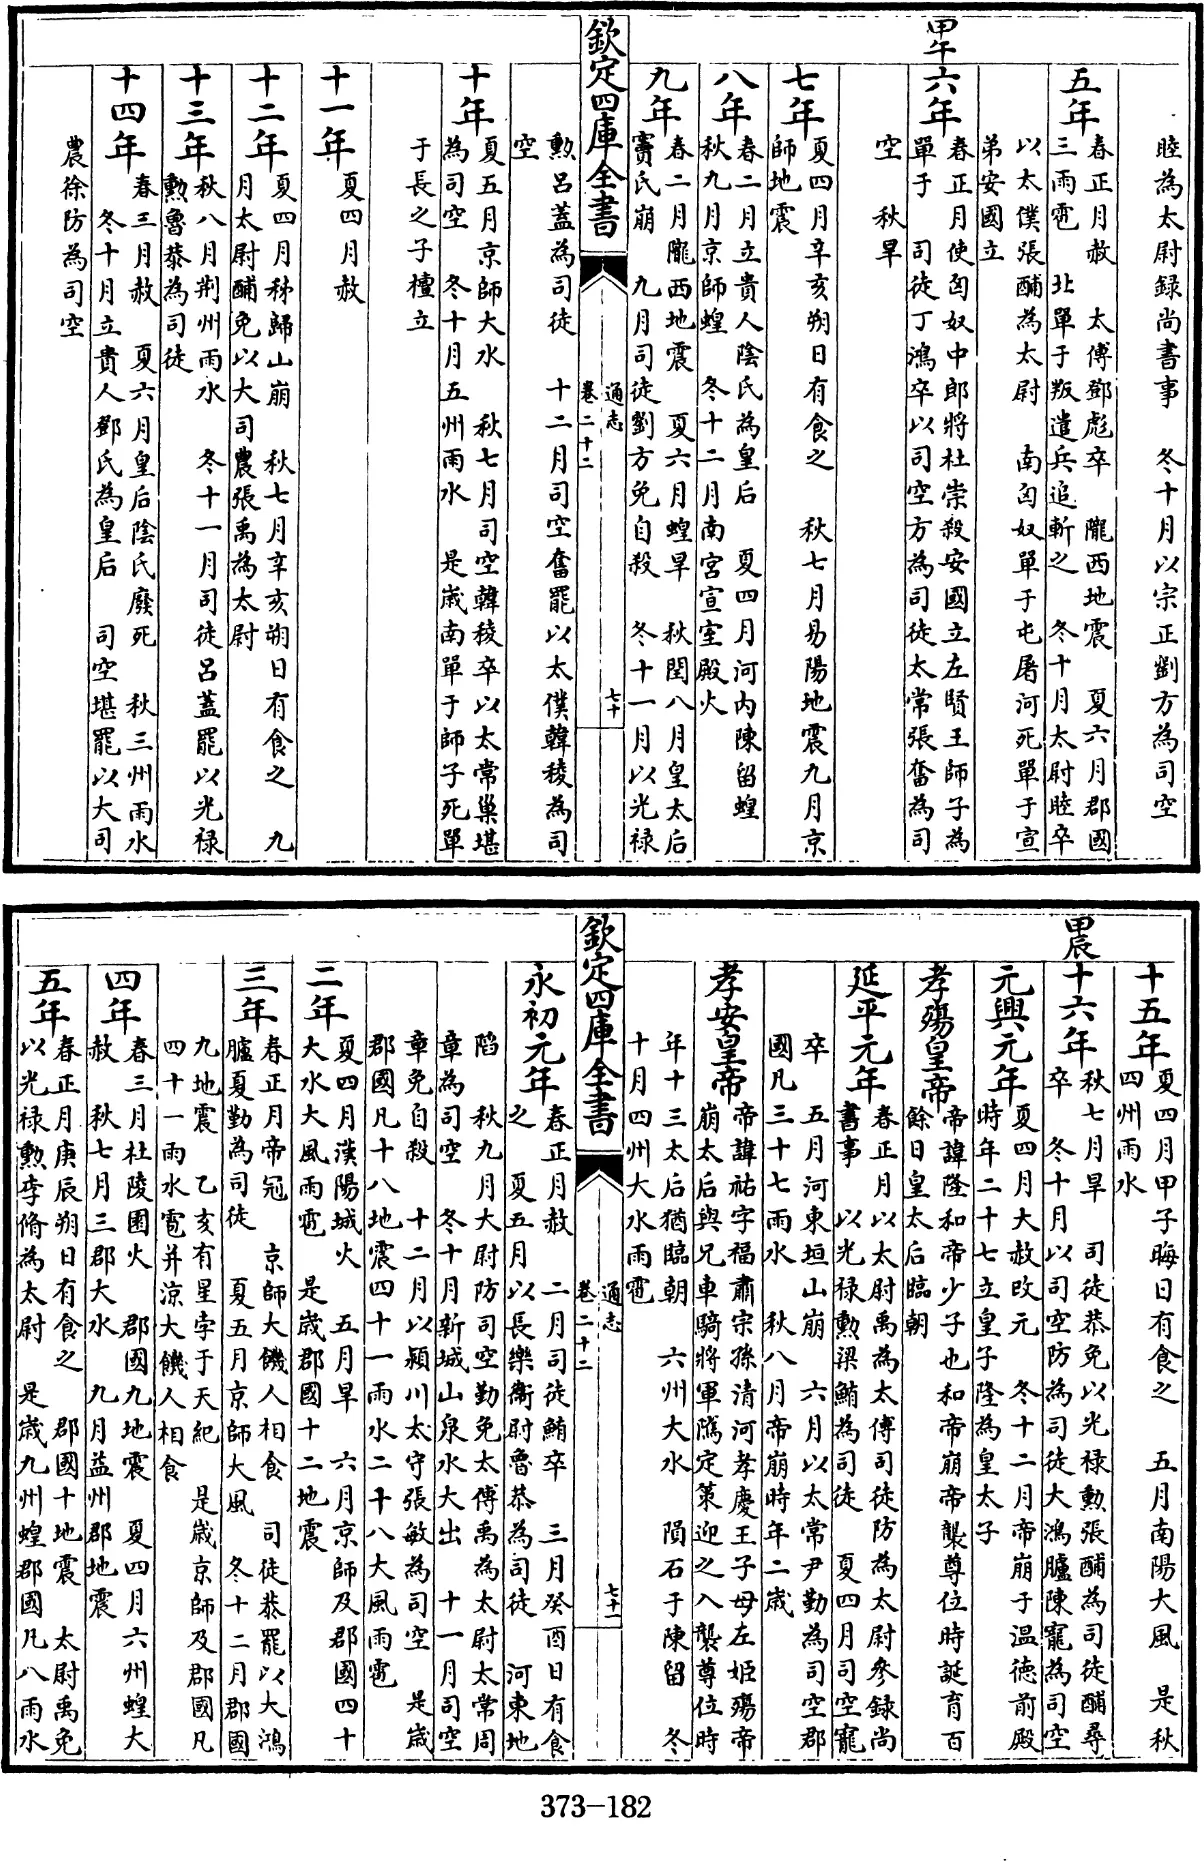 睦為太尉録尚書事　冬十月以宗正劉方為司空
五年
春正月赦　太傅鄧彪卒　隴西地震　夏六月郡國
三雨雹　北單于叛遣兵追斬之　冬十月太尉睦卒
以太僕張酺為太尉　南匈奴單于屯屠河死單于宣
弟安國立
甲午
六年
春正月使匈奴中郎將杜崇殺安國立左賢王師子為
單于　司徒丁鴻卒以司空方為司徒太常張奮為司
空　秋旱
七年
夏四月辛亥朔日有食之　秋七月易陽地震九月京
師地震
八年
春二月立貴人陰氏為皇后　夏四月河内陳留蝗
秋九月京師蝗　冬十二月南宮宣室殿火
九年
春二月隴西地震　夏六月蝗旱　秋閏八月皇太后
竇氏崩　九月司徒劉方免自殺　冬十一月以光禄
欽定四庫全書
通志
卷二十二
七十
勲呂蓋為司徒　十二月司空奮罷以太僕韓稜為司
空
十年
夏五月京師大水　秋七月司空韓稜卒以太常巢堪
為司空　冬十月五州雨水　是歳南單于師子死單
于長之子檀立
十一年
夏四月赦
十二年
夏四月秭歸山崩　秋七月辛亥朔日有食之　九
月太尉酺免以大司農張禹為太尉
十三年
秋八月荆州雨水　冬十一月司徒呂蓋罷以光禄
勲魯恭為司徒
十四年
春三月赦　夏六月皇后陰氏廢死　秋三州雨水
冬十月立貴人鄧氏為皇后　司空堪罷以大司
農徐防為司空
十五年
夏四月甲子晦日有食之　五月南陽大風　是秋
四州雨水
甲辰
十六年
秋七月旱　司徒恭免以光禄勲張酺為司徒酺尋
卒　冬十月以司空防為司徒大鴻臚陳寵為司空
元興元年
夏四月大赦改元　冬十二月帝崩于温徳前殿
時年二十七立皇子隆為皇太子
孝殤皇帝
帝諱隆和帝少子也和帝崩帝襲尊位時誕育百
餘日皇太后臨朝
延平元年
春正月以太尉禹為太傅司徒防為太尉參録尚
書事　以光禄勲梁鮪為司徒　夏四月司空寵
卒　五月河東垣山崩　六月以太常尹勤為司空郡
國凡三十七雨水　秋八月帝崩時年二歳
孝安皇帝
帝諱祜字福肅宗孫清河孝慶王子母左姬殤帝
崩太后與兄車騎將軍隲定策迎之入襲尊位時
年十三太后猶臨朝　六州大水　隕石于陳留　冬
十月四州大水雨雹
欽定四庫全書
通志
卷二十二
七十一
永初元年
春正月赦　二月司徒鮪卒　三月癸酉日有食
之　夏五月以長樂衛尉魯恭為司徒　河東地
陷　秋九月大尉防司空勤免太傅禹為太尉太常周
章為司空　冬十月新城山泉水大出　十一月司空
章免自殺　十二月以潁川太守張敏為司空　是歳
郡國凡十八地震四十一雨水二十八大風雨雹
二年
夏四月漢陽城火　五月旱　六月京師及郡國四十
大水大風雨雹　是歳郡國十二地震
三年
春正月帝冠　京師大饑人相食　司徒恭罷以大鴻
臚夏勤為司徒　夏五月京師大風　冬十二月郡國
九地震　乙亥有星孛于天紀　是歳京師及郡國凡
四十一雨水雹并涼大饑人相食
四年
春三月杜陵園火　郡國九地震　夏四月六州蝗大
赦　秋七月三郡大水　九月益州郡地震
五年
春正月庚辰朔日有食之　郡國十地震　太尉禹免
以光禄勲李脩為太尉　是歳九州蝗郡國凡八雨水
373-182